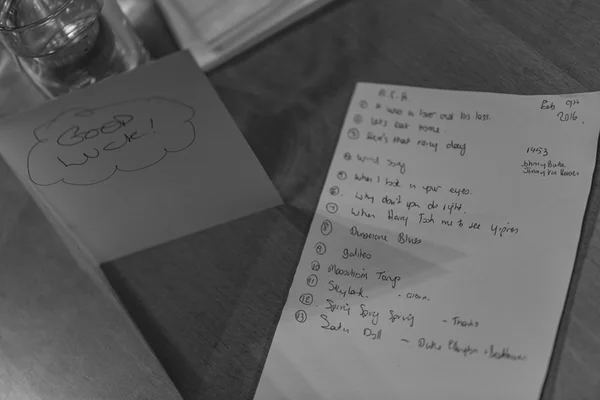 GOOD
LUCK!
A.C.A
Feb 9th
2016.
① it was in love and his loss.
② Let's eat home.
③ Here's that rainy day
1953
Johnny Burke
Jimmy Van Heusen
④ Wind Song
⑤ When I look in your eyes.
⑥ Why don't you do right.
⑦ When Harry Took me to see Ypres
⑧ Dangerine Blues
⑨ Galileo
⑩ Moonshine Tango
⑪ Skylark.
⑫ Spring Spring Spring - Thanks
⑬ Satin Doll - Duke Ellington +